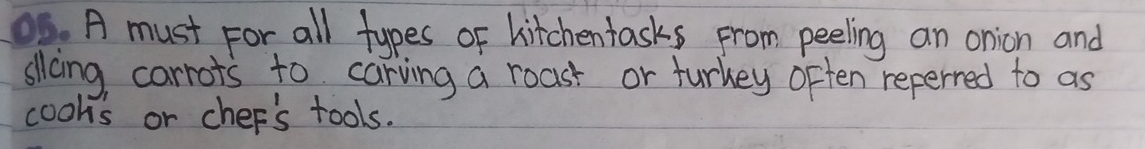 05. A must for all types of kitchentasks from peeling an onion and
slicing carrots to carving a roast or turkey often referred to as
cook's or chef's tools.